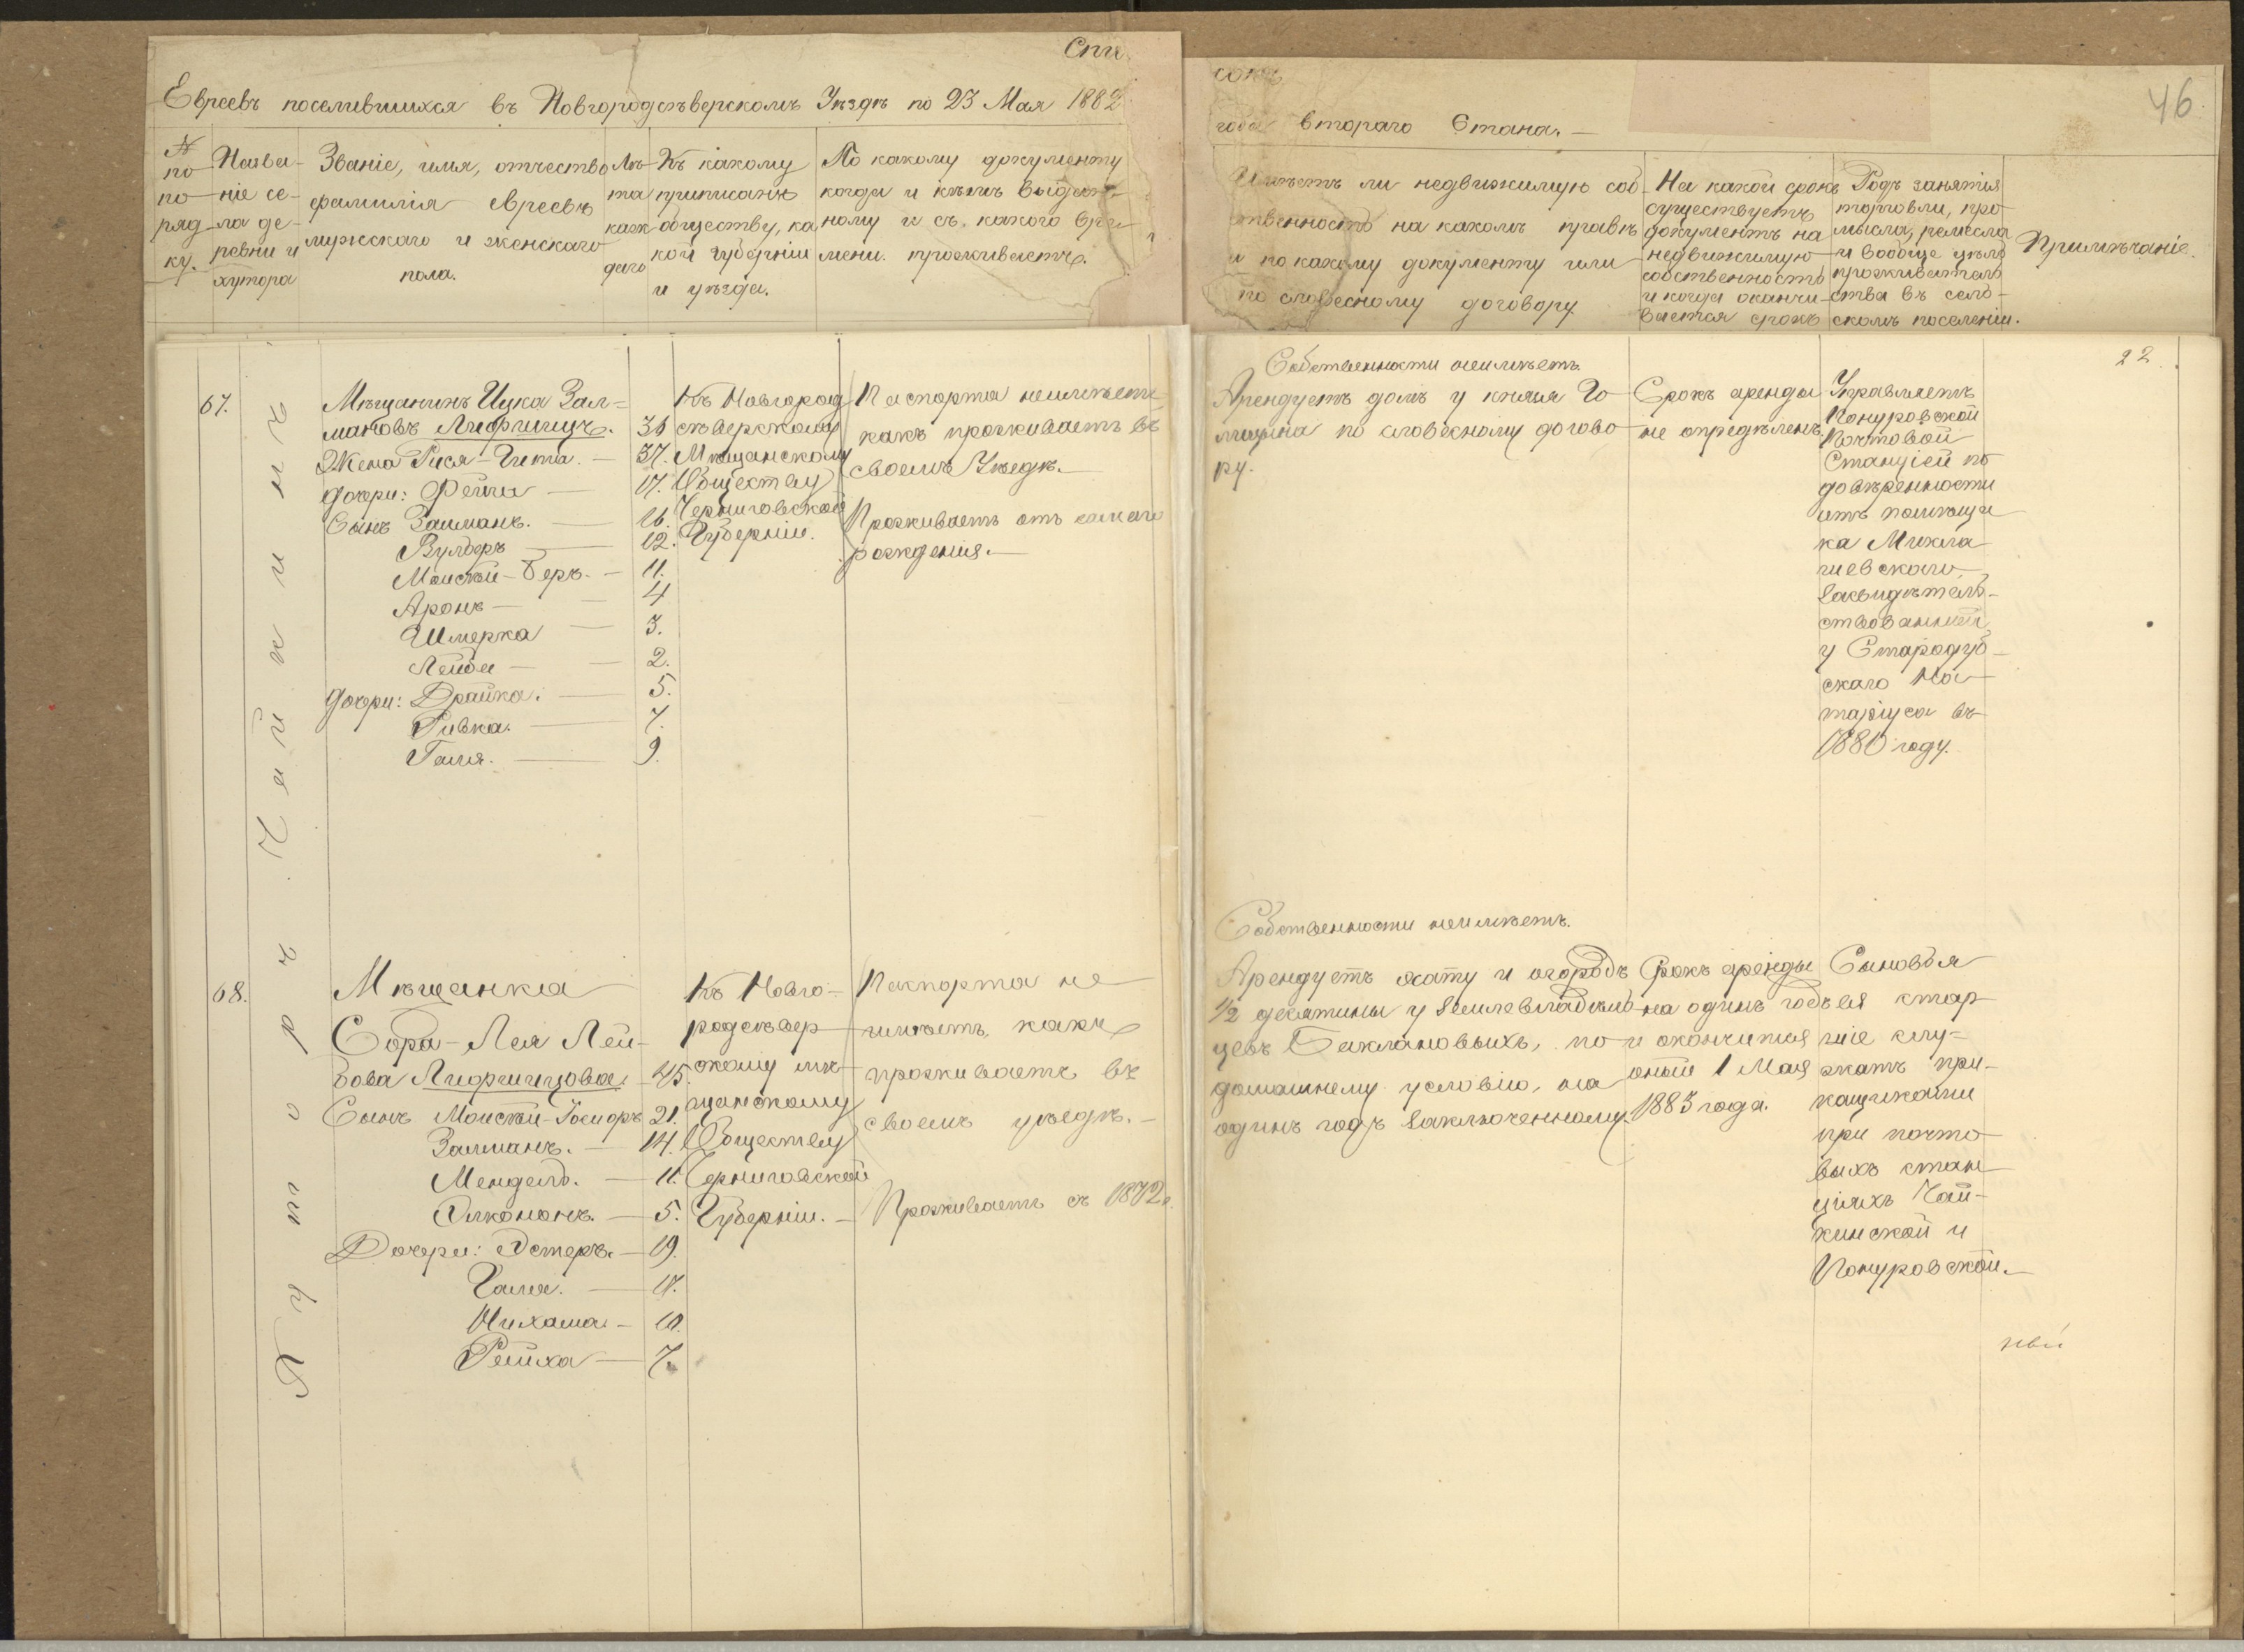 Спи
сокъ
46.
Евреевъ поселившихся въ Новгородсѣверскомъ Уѣздѣ по 23 Мая 1882
года втораго Стана.
№
по
по
ряд
ку.
Назва-
ніе се-
ла де-
ревни и
хутора
Званіе, имя, отчество
фамилія евреевъ
мужскаго и женскаго
пола.
Лѣ-
та
каж
даго
Къ какому
приписанъ
обществу, ка
кой губерніи
и уѣзда.
По какому документу
когда и кѣмъ выдан-
ному и съ какого вре
мени проживаетъ.
Имѣетъ ли недвижимую соб-
ственность на какомъ правѣ
и по какому документу или
по словесному договору
На какой срокъ
существуетъ
документъ на
недвижимую
собственность
и когда оканчи-
вается срокъ
Родъ занятія
торговли, про
мысла, ремесла
и вообще цѣль
прожи­ватель
ства въ сель-
скомъ поселеніи.
Примѣчаніе.
22.
67.
Мѣщанинъ Ицка Зал-
мановъ Лифшицъ. 36
Жена Рися-Гита. 37.
дочери: Фейга 17.
Сынъ Залманъ. 16.
Вулверъ 12.
Моисей-Беръ. 11.
Аронъ 4
Шмерка 3.
Лейба 2.
дочери: Драйка. 5.
Ривка. 7.
Галя. 9.
Къ Новгород
сѣверскому
Мѣщанскому
Обществу
Черниговской
Губерніи.
Паспорта неимѣетъ
какъ проживаетъ въ
своемъ Уѣздѣ.
Проживаетъ отъ самаго
рожденія.
Собственности неимѣетъ
Арендуетъ домъ у князя Го
лицына по словесному догово
ру.
Срокъ аренды
не опредѣленъ
Управляетъ
Понуровской
Почтовой
Станціей по
довѣренности
отъ помѣщи
ка Микла
шевскаго
засвидѣтель-
ствованной
у Стародуб-
скаго Но-
таріуса въ
1880 году.
68.
Мѣщанка
Сора-Лея Лей-
бова Лифшицова. 45.
Сынъ Моисей-Іосифъ 21.
Залманъ. 14.
Мендель. 11.
Элкононъ. 5.
Дочери: Эстеръ. 19.
Галя. 17.
Нихама 10.
Рейха 7.
Къ Новго-
родсѣвер
скому мѣ-
щанскому
Обществу
Черниговской
Губерніи.
Паспорта не
имѣетъ, какъ
проживаетъ въ
своемъ уѣздѣ.
Проживаетъ съ 1872г.
Собственности неимѣетъ.
Арендуетъ хату и огородъ
1/2 десятины у землевладѣль
цевъ Баклановыхъ, по
домашнему условію, на
одинъ годъ заключенному.
Срокъ аренды
на одинъ годъ
и окончится
оный 1 Мая
1883 года.
Сыновья
ея стар
шіе слу-
жатъ при-
кащиками
при почто
выхъ стан
ціяхъ Чай-
кинской и
Понуровской.